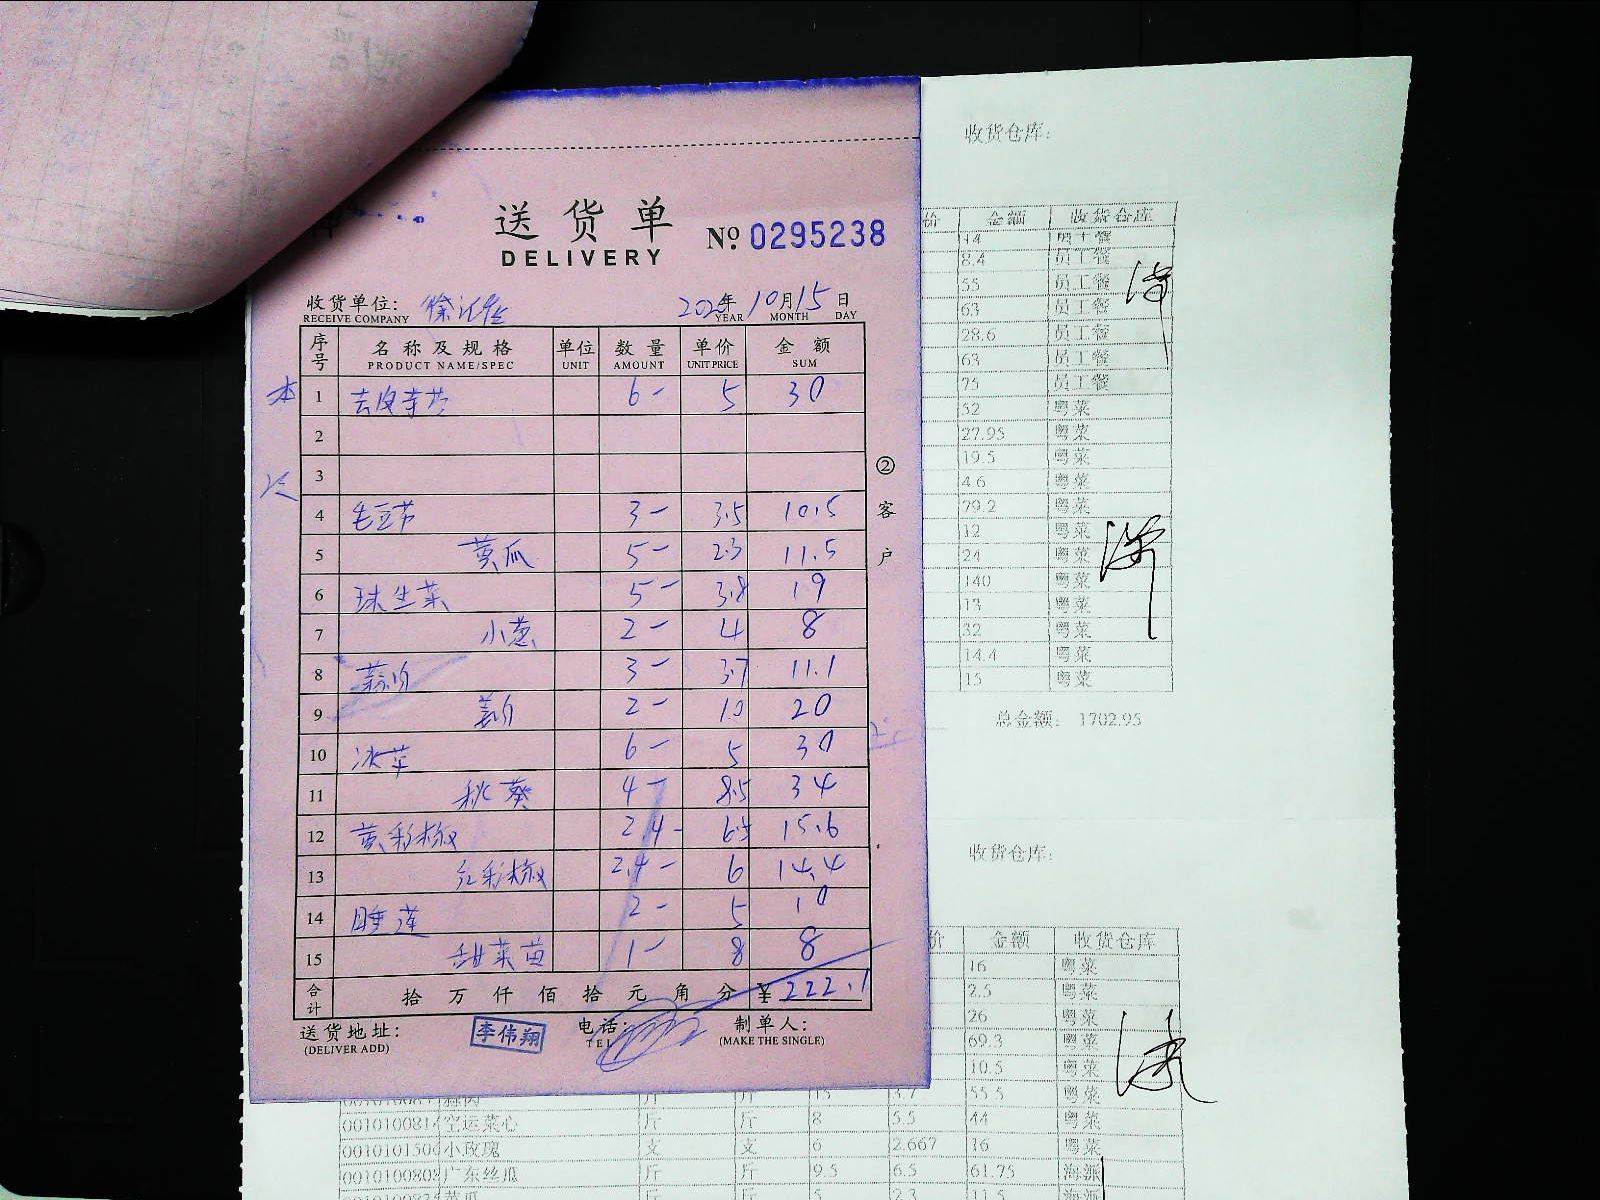 送货单
DELIVERY
№ 0295238
收货单位:
RECEIVE COMPANY
年 10月15日
YEAR MONTH DAY
序号 名称及规格 单位 数量 单价 金额
PRODUCT NAME/SPEC UNIT AMOUNT UNIT PRICE SUM
本
1 去皮莴苣 6- 5 30
2
3
4 毛豆节 3- 3.5 10.5
5 黄瓜 5- 2.3 11.5
6 球生菜 5- 3.8 19
7 小葱 2- 4 8
8 蒜肉 3- 3.7 11.1
9 姜肉 2- 10 20
10 冰草 6- 5 30
11 秋葵 4- 8.5 34
12 黄彩椒 2.4- 6.5 15.6
13 红彩椒 2.4- 6 14.4
14 睡莲 2- 5 10
15 甜菜苗 1- 8 8
合计 拾 万 仟 佰 拾 元 角 分 ¥222.1
送货地址:
(DELIVER ADD)
李伟翔
电话:
TEL
制单人:
(MAKE THE SINGLE)
②客户
收货仓库:
价 金额 收货仓库
14 员工餐
8.4 员工餐
55 员工餐
63 员工餐
28.6 员工餐
63 员工餐
75 员工餐
52 粤菜
27.95 粤菜
19.5 粤菜
4.6 粤菜
79.2 粤菜
12 粤菜
24 粤菜
140 粤菜
13 粤菜
32 粤菜
14.4 粤菜
15 粤菜
总金额: 1702.95
收货仓库:
价 金额 收货仓库
16 粤菜
2.5 粤菜
26 粤菜
69.3 粤菜
10.5 粤菜
15 3.7 55.5 粤菜
空运菜心 斤 斤 8 5.5 44 粤菜
小玫瑰 支 支 6 2.667 16 粤菜
广东丝瓜 斤 斤 9.5 6.5 61.75 海派
黄瓜 斤 斤 5 2.3 11.5 海派